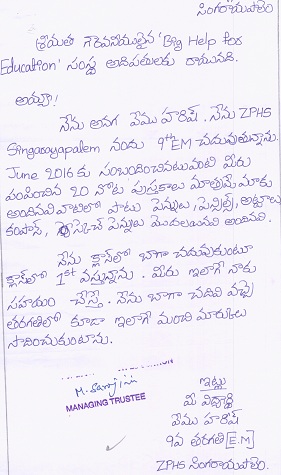 సింగరాయపాలెం
శ్రీయుత గౌరవనీయులైన 'Big Help for
Education' సంస్థ అధిపతులకు రాయునది.
అయ్యా!
నేను అనగా వేము హరీష్. నేను ZPHS
Singarayapalem నందు 9th EM చదువుతున్నాను.
June 2016 కు సంబంధించినటువంటి మీరు
పంపించిన 20 నోటు పుస్తకాలు మాత్రమే మాకు
అందినవి వాటిలో పాటు పెన్నులు, పెన్సిల్స్, అట్టలు
కంపాస్, స్కెచ్ పెన్నులు మొదలయినవి అందినవి.
నేను క్లాస్‌లో బాగా చదువుకుంటూ
క్లాస్‌లో 1st వస్తున్నాను. మీరు ఇలాగే నాకు
సహాయం చేస్తే. నేను బాగా చదివి వచ్చే
తరగతిలో కూడా ఇలాగే మంచి మార్కులు
సాధించుకుంటాను.
M. Sarojini
MANAGING TRUSTEE
ఇట్లు
మీ విద్యార్థి
వేము హరీష్
9వ తరగతి [E.M]
ZPHS సింగరాయపాలెం.